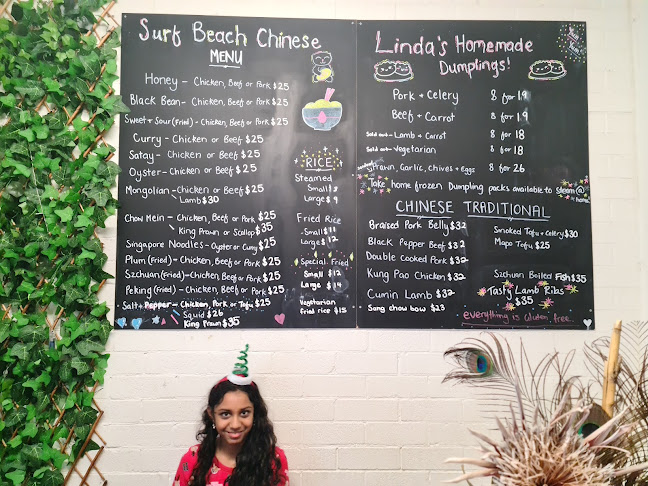 Surf Beach Chinese
MENU
Honey - Chicken, Beef or Pork $25
Black Bean - Chicken, Beef or Pork $25
Sweet + Sour (Fried) - Chicken, Beef or Pork $25
Curry - Chicken or Beef $25
Satay - Chicken or Beef $25
Oyster - Chicken or Beef $25
Mongolian - Chicken or Beef $25
Lamb $30
Chow Mein - Chicken, Beef or Pork $25
King Prawn or Scallop $35
Singapore Noodles - Oyster or Curry $25
Plum (fried) - Chicken, Beef or Pork $25
Szchuan (fried) - Chicken, Beef or Pork $25
Peking (fried) - Chicken, Beef or Pork $25
Salt + Pepper - Chicken, Pork or Tofu $25
Squid $26
King Prawn $35
RICE
Steamed
Small $
Large $9
Fried Rice
Small $11
Large $12
Special Fried
Small $12
Large $14
Vegetarian
fried rice $15
Linda's Homemade
Dumplings!
Pork + Celery 8 for 19
Beef + Carrot 8 for 19
Sold out - Lamb + Carrot 8 for 18
Sold out - Vegetarian 8 for 18
Prawn, Garlic, Chives + Eggs 8 for 26
Take home frozen Dumpling packs available to steam @ home
CHINESE TRADITIONAL
Braised Pork Belly $32
Black Pepper Beef $32
Double Cooked Pork $32
Kung Pao Chicken $32
Cumin Lamb $32
Sang chow bow $23
Smoked Tofu + Celery $30
Mapo Tofu $25
Szchuan Boiled Fish $35
Tasty Lamb Ribs
$35
everything is Gluten free.